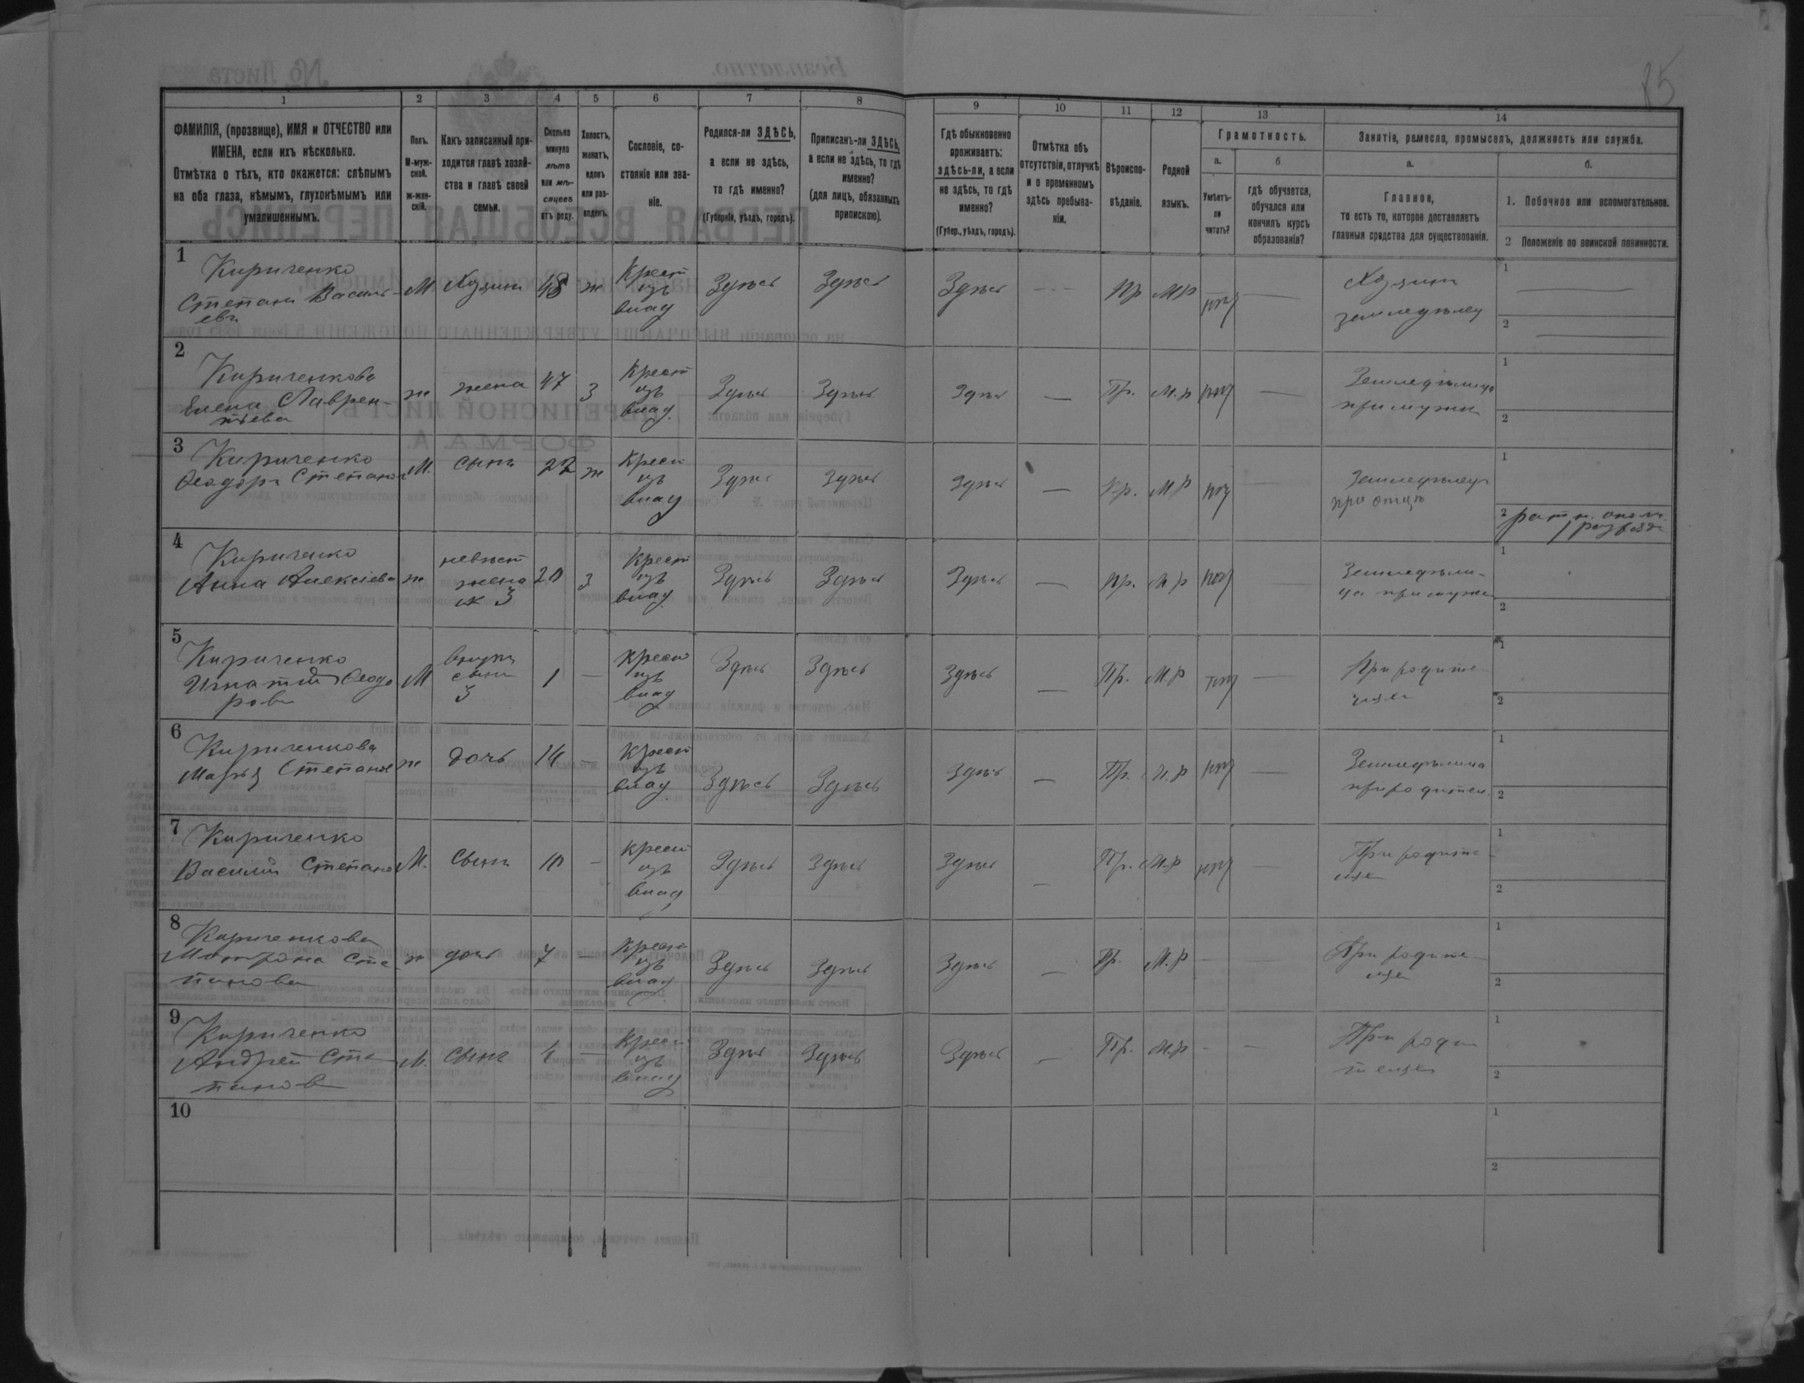 85
1 2 3 4 5 6 7 8 9 10 11 12 13 14
ФАМИЛІЯ, (прозвище), ИМЯ и ОТЧЕСТВО или
ИМЕНА, если ихъ нѣсколько.
Отмѣтка о тѣхъ, кто окажется: слѣпымъ
на оба глаза, нѣмымъ, глухонѣмымъ или
умалишеннымъ.
Полъ.
М-муж-
ской.
ж-жен-
скій.
Какъ записанный при-
ходится главѣ хозяй-
ства и главѣ своей
семьи.
Сколько
минуло
лѣтъ
или мѣ-
сяцевъ
отъ роду.
Холостъ,
женатъ,
вдовъ
или раз-
веденъ.
Сословіе, со-
стояніе или зва-
ніе.
Родился-ли ЗДѢСЬ,
а если не здѣсь,
то гдѣ именно?
(Губернія, уѣздъ, городъ).
Приписанъ-ли ЗДѢСЬ,
а если не здѣсь, то гдѣ
именно?
(для лицъ, обязанныхъ
припискою).
Гдѣ обыкновенно
проживаетъ:
здѣсь-ли, а если
не здѣсь, то гдѣ
именно?
(Губер., уѣздъ, городъ).
Отмѣтка объ
отсутствіи, отлучкѣ
и о временномъ
здѣсь пребыва-
ніи.
Вѣроиспо-
вѣданіе.
Родной
языкъ.
Грамотность.
а.
Умѣетъ-
ли
читать?
б
гдѣ обучается,
обучался или
кончилъ курсъ
образованія?
Занятія, ремесло, промыселъ, должность или служба.
а.
Главное,
то есть то, которое доставляетъ
главныя средства для существованія.
б.
1. Побочное или вспомогательное.
2 Положеніе по воинской повинности.
1
Кириченко
Степанъ Василь
евъ
М Хозяинъ 48 ж
Крест
изъ
влад
Здѣсь Здѣсь Здѣсь Пр М.р нѣт
Хозяинъ
земледѣлец
1
2
2
Кириченкова
Елена Лаврен-
тьева
ж жена 47 З
Крест
изъ
влад.
Здѣсь Здѣсь Здѣсь — Пр. М.р нѣт —
Земледѣлица
при мужи
1
2
3
Кириченко
Ѳеодоръ Степанов
М. сынъ 22 ж
Крест
изъ
влад
Здѣсь Здѣсь Здѣсь — Пр. М.р нѣт
Земледѣлец
при отцѣ
1
2 ратн. опол
разряда
4
Кириченко
Анна Алексіева
ж
невѣст
жена
к 3
20 З
Крест
изъ
влад.
Здѣсь Здѣсь Здѣсь — Пр. М.р нѣт
Земледѣли-
ца при мужи
1
2
5
Кириченко
Игнатій Ѳеодо
ровъ
М
внукъ
сынъ
3
1 —
Крест
изъ
влад
Здѣсь Здѣсь Здѣсь — Пр. М.р нѣт —
При родите
лях
1
2
6
Кириченкова
Марья Степанов
ж дочь 14 —
Крест
изъ
влад.
Здѣсь Здѣсь Здѣсь — Пр. М.р нѣт —
Земледѣлица
при родител
1
2
7
Кириченко
Василий Степанов
М. сынъ 10 —
Крест
изъ
влад
Здѣсь Здѣсь Здѣсь — Пр. М.р нѣт —
При родите
лях
1
2
8
Кириченкова
Матрона Сте
панова
ж дочь 7 —
Крест
изъ
влад
Здѣсь Здѣсь Здѣсь — Пр. М.р - -
При родите
лях
1
2
9
Кириченко
Андрей Сте
панов
М. сынъ 4 —
Крест
изъ
влад
Здѣсь Здѣсь Здѣсь — Пр. М.р - -
При роди
телях
1
2
10
1
2